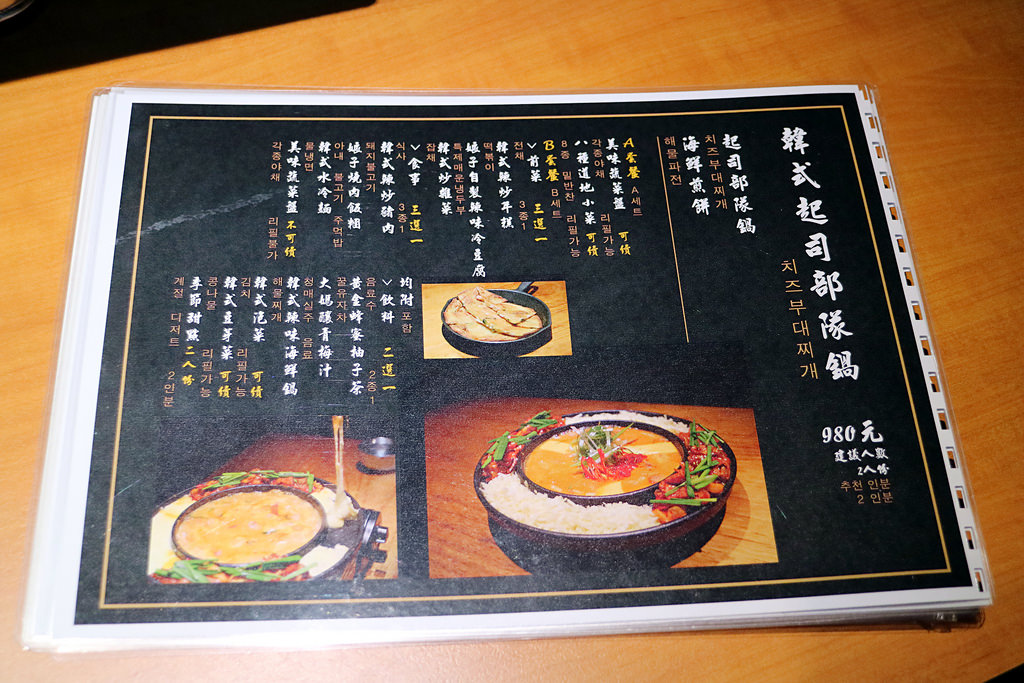 韓式起司部隊鍋
치즈부대찌개
980元
建議人數
2人份
추천 인분
2 인분
起司部隊鍋
치즈부대찌개
海鮮煎餅
해물파전
A套餐 A세트
美味蔬菜盤 可續
각종야채 리필가능
八種道地小菜 可續
8종 밑반찬 리필가능
B套餐 B세트
∨前菜 三選一
전채 3종1
韓式辣炒年糕
떡볶이
娘子自製辣味冷豆腐
특제매운냉두부
韓式炒雜菜
잡채
∨食事 三選一
식사 3종1
韓式辣炒豬肉
돼지불고기
娘子燒肉飯糰
아내 불고기 주먹밥
韓式水冷麵
물냉면
美味蔬菜盤 不可續
각종야채 리필불가
均附 포함
∨飲料 二選一
음료수 2종1
黃金蜂蜜柚子茶
꿀유자차
大媽釀青梅汁
청매실주 음료
韓式辣味海鮮鍋
해물찌개
韓式泡菜 可續
김치 리필가능
韓式豆芽菜 可續
콩나물 리필가능
季節甜點 二人份
계절 디저트 2인분